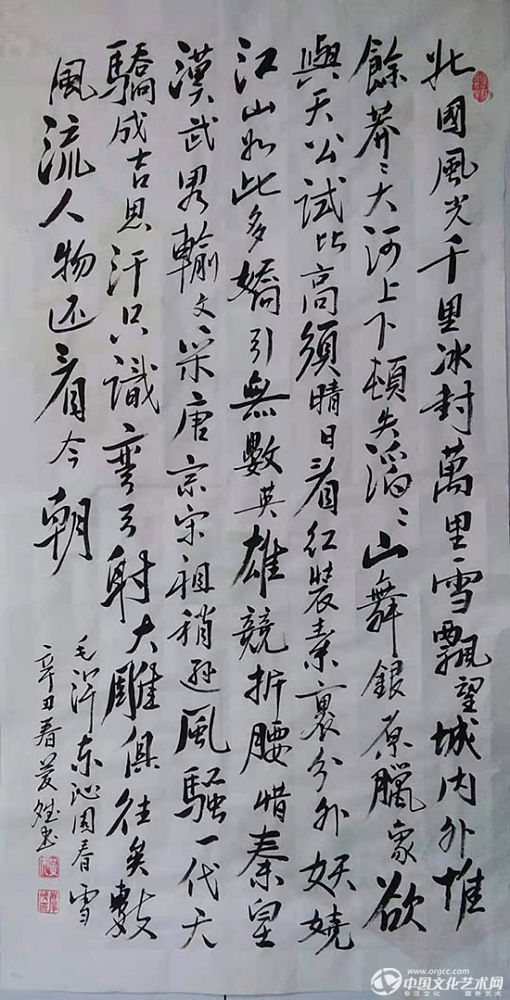 北國風光千里冰封萬里雪飄望城内外惟
餘莽〻大河上下頓失滔〻山舞銀原臘象欲
與天公試比高須晴日看红裝素裹分外妖嬈
江山如此多嬌引無數英雄競折腰惜秦皇
漢武畧輸文采唐宗宋祖稍遜風騷一代天
驕成吉思汗只識彎弓射大雕俱往矣數
風流人物还看今朝
毛泽东沁园春雪
辛丑春
www.orgcc.com
中国文化艺术网
专注文化 服务艺术